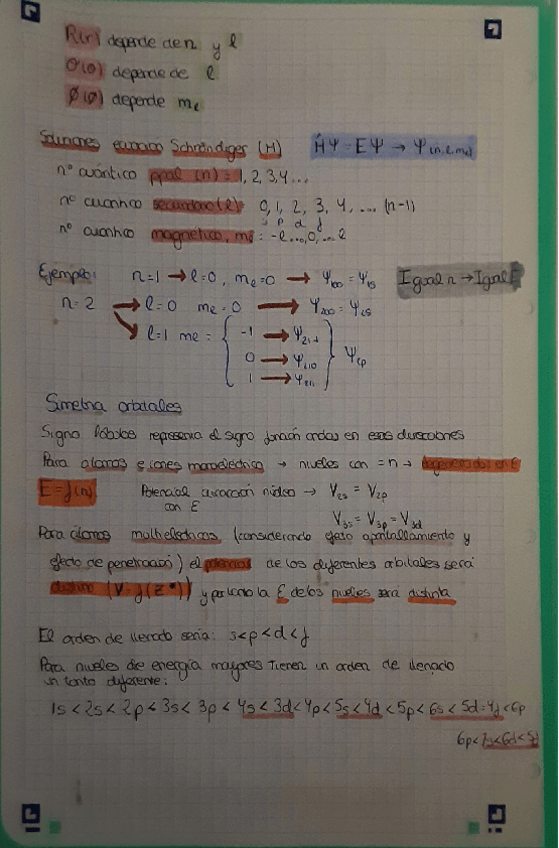 R(r) depende de n y l
Θ(θ) depende de l
Φ(φ) depende mₑ
Soluciones ecuación Schrödinger (H) ĤΨ = EΨ → Ψ(n,l,mₑ)
nº cuántico ppal (n) = 1, 2, 3, 4...
nº cuantico secundario (l): 0, 1, 2, 3, 4, ... (n-1)
s p d f
nº cuantico magnetico, mₑ: -l...,0,...l
Ejemplo: n=1 → l=0, mₑ=0 → Ψ₁₀₀ = Ψ₁s Igual n → Igual E
n=2 → l=0 mₑ=0 → Ψ₂₀₀ = Ψ₂s
→ l=1 mₑ = { -1 → Ψ₂₁₋₁
0 → Ψ₂₁₀ } Ψ₂p
1 → Ψ₂₁₁
Simetria orbitales
Signo lóbulos representa el signo función ondas en esas direcciones
Para átomos e iones monoeléctrico → niveles con = n → degenerados en E
E = f(n) Potencial atracción núcleo → V₂s = V₂p
con E
V₃s = V₃p = V₃d
Para átomos multielectricos (considerando efecto apantallamiento y
efecto de penetración) el potencial de los diferentes orbitales será
distinto (V = f(Z*)) y por tanto la E de los niveles será distinta
El orden de llenado seria: s<p<d<f
Para niveles de energía mayores tienen un orden de llenado
un tanto diferente:
1s < 2s < 2p < 3s < 3p < 4s < 3d < 4p < 5s < 4d < 5p < 6s < 5d=4f < 6p
6p<7s<6d<5f